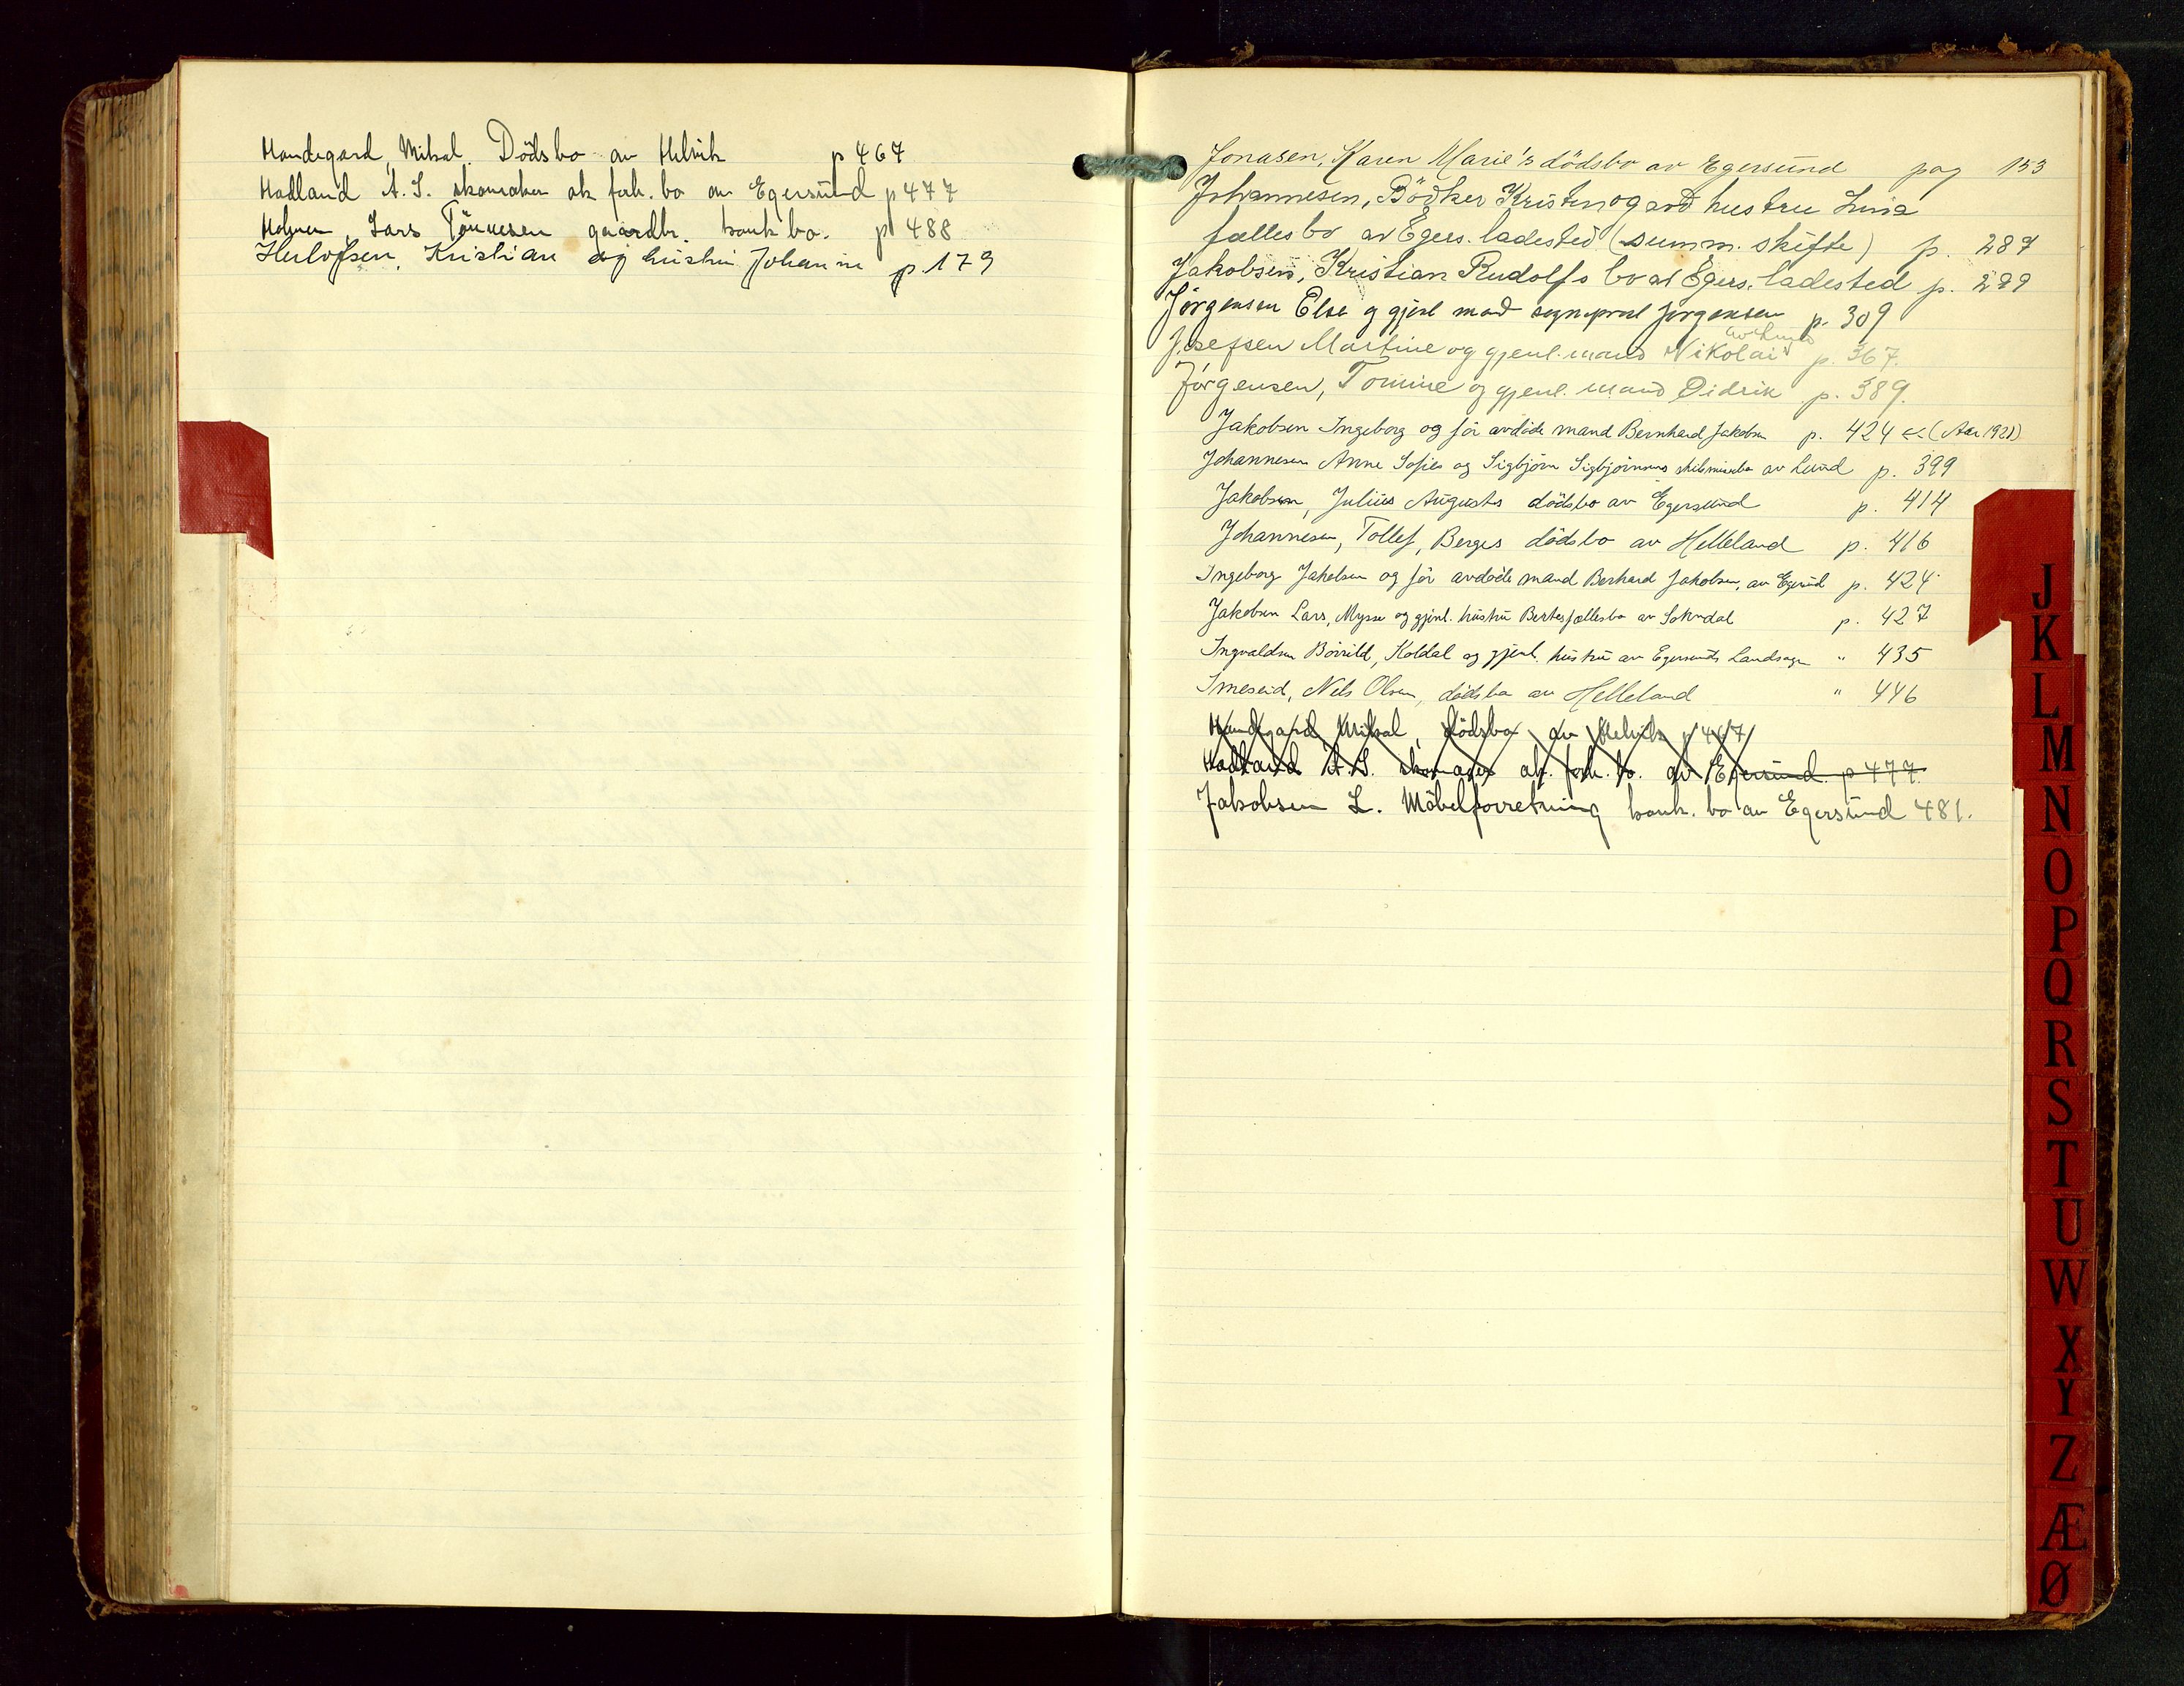 Handegard, Mikal. Dödsbo av Helvik p 467
Hadland A. S. skomaker ak. forh. bo av Egersund p 477
Holmen, Lars Tönnesen gaardbr. konk bo. p 488
Herlofsen, Kristian og hustru Johanne p. 179
Jonasen, Karen Marie's dödsbo av Egersund pag 153
Johannesen, Bödker Kristen og avd hustru Lina
fællesbo av Egers. ladested (summ. skifte) p. 287
Jakobsen, Kristian Rudolfs bo av Egers. ladested p. 299
Jörgensen Else og gjenl mand Jörgensen p. 309
av Lund
Josefsen Martine og gjenl. mand Nikolai p. 367.
Jörgensen, Tomine og gjenl. mand Didrik p. 389.
Jakobsen Ingeborg og för avdöde mand Bernhard Jakobsen p. 424 (Aar 1921)
Johannesen Anne Sofies og Sigbjörn Sigbjörnsens av Lund p. 399
Jakobsen, Julius Augusts dödsbo av Egersund p. 414
Johannesen, Tollef, Berges dödsbo av Helleland p. 416
Ingeborg Jakobsen og för avdöde mand Berhard Jakobsen, av Egersund p. 424
Jakobsen Lars, Mysse og gjenl. hustru Bertes fællesbo av Sokndal p. 427
Ingvaldsen Börrild, Koldal og gjenl. hustru av Egersunds Landsogn " 435
Imeseid, Nils Olsen, dödsbo av Helleland " 446
Handegard, Mikal, dödsbo av Helvik p 467
Hadland A. S. skomager ak. forh. bo. av Egersund. p 477.
Jakobsen L. Möbelforretning konk. bo av Egersund 481.
J
K
L
M
N
O
P
Q
R
S
T
U
W
X
Y
Z
Æ
Ø